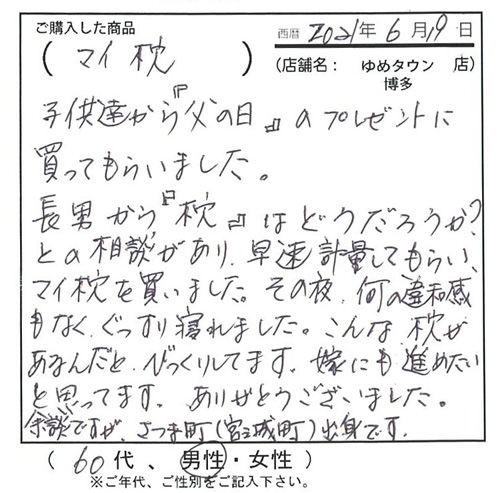 ご購入した商品
西暦 2021年 6月 19日
(マイ枕)
(店舗名： ゆめタウン 店)
博多
子供達から『父の日』のプレゼントに
買ってもらいました。
長男から『枕』はどうだろうか?
との相談があり、早速計量してもらい、
マイ枕を買いました。その夜、何の違和感
もなく、ぐっすり寝れました。こんな枕が
あるんだと、びっくりしてます。嫁にも進めたい
と思ってます。ありがとうございました。
余談ですが、さつま町(宮之城町)出身です。
(60代、男性・女性)
※ご年代、ご性別をご記入下さい。